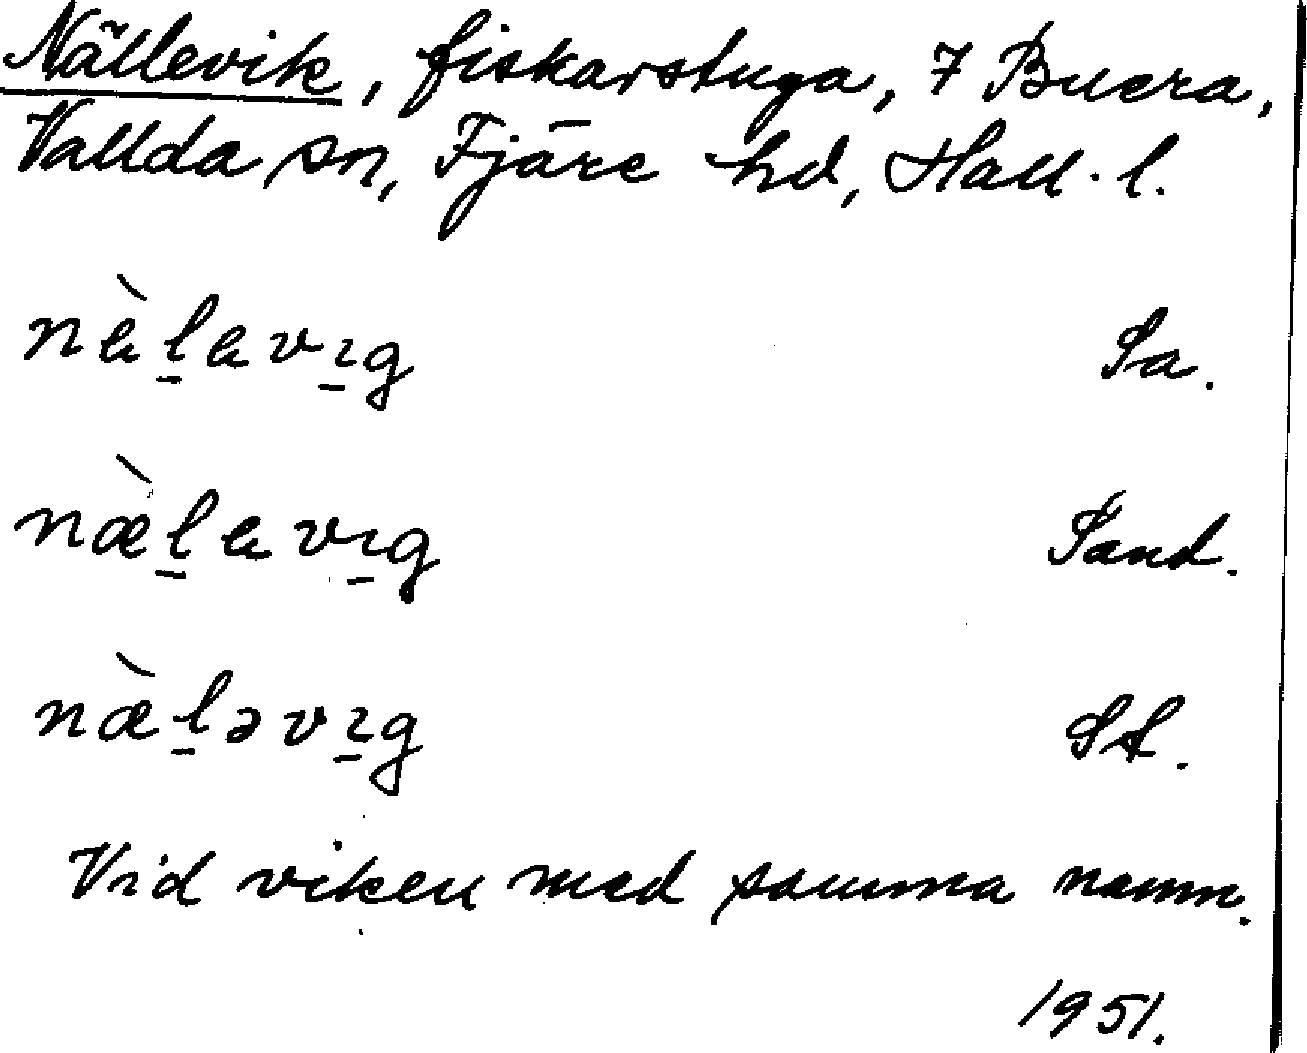 Nällevik, fiskarstuga, 7 Buera,
Vallda sn, Fjäre hd, Hall. l.
nàl̠avı̠g Sa.
næ̀l̠avı̠g Sand.
næ̀l̠əvı̠g St.
Vid viken med samma namn.
1951.